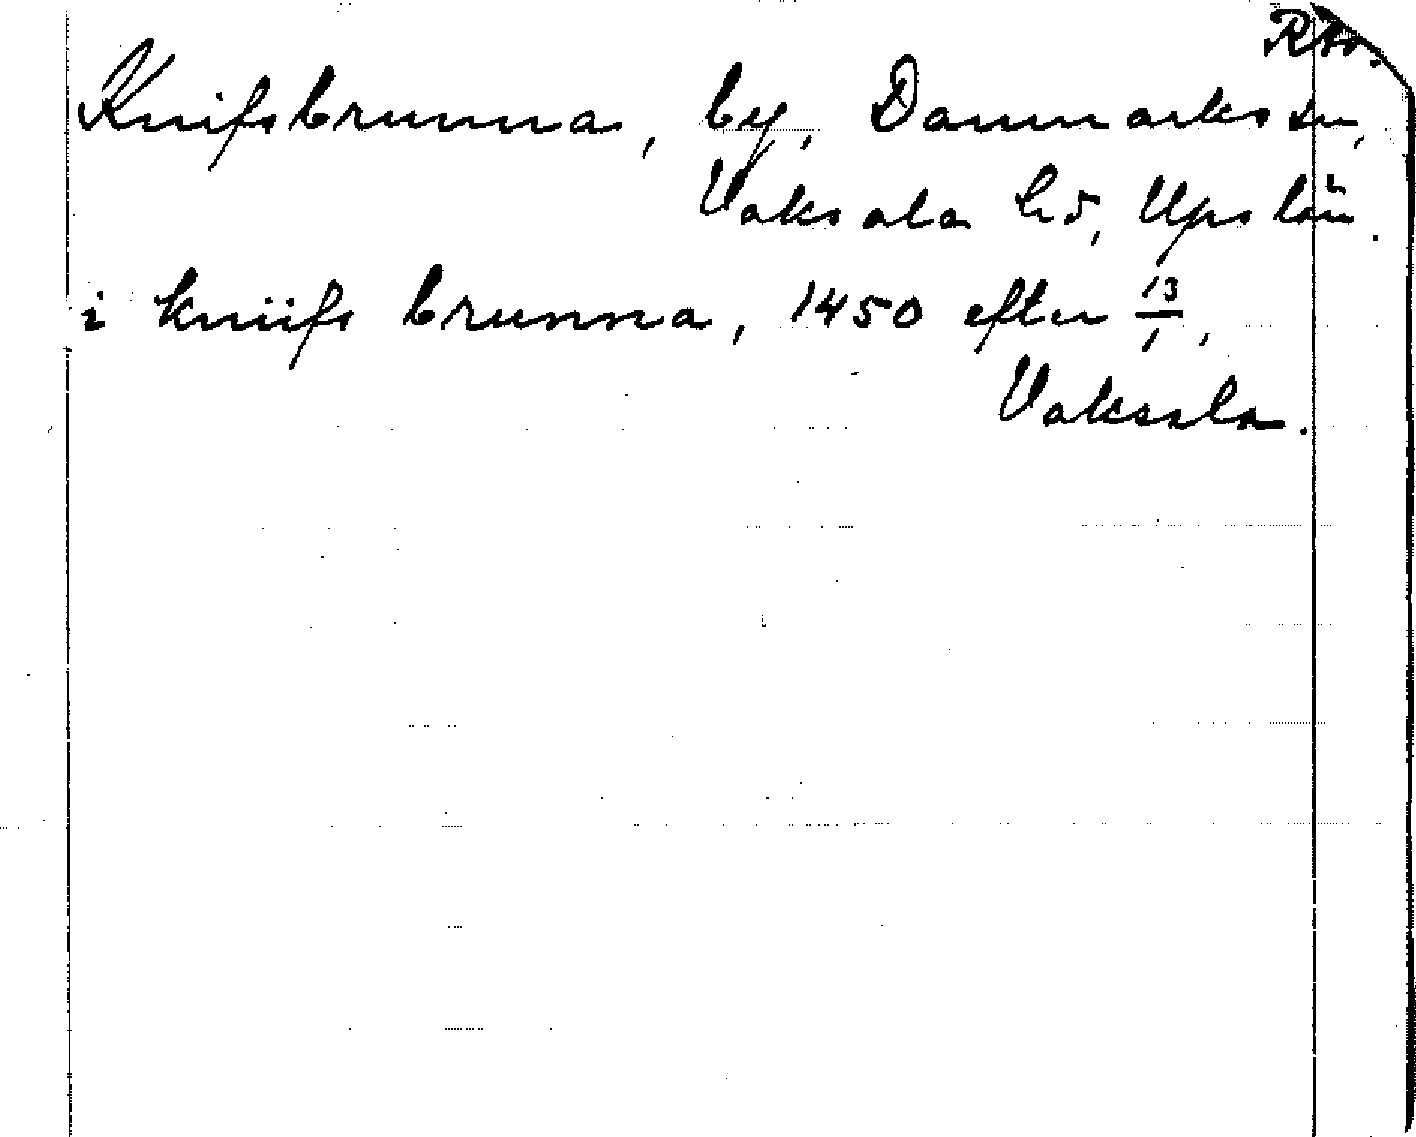 Knifsbrunna, by, Danmarks sn,
Vaksala hd, Ups län.
i kniifs brunna, 1450 efter 13/1,
Vaksala.